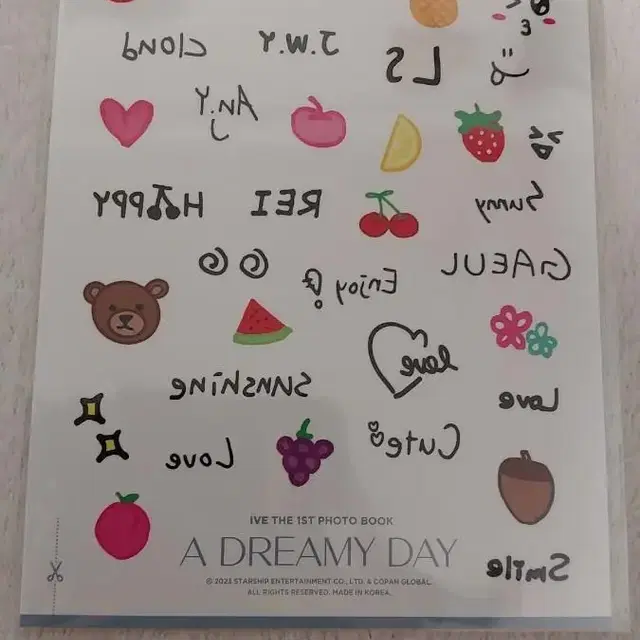 cloud
J.W.Y
LS
An.Y.J
HAPPY
REI
Sunny
Enjoy!
GAEUL
love
sunshine
Love
Love
Cute
Smile
IVE THE 1ST PHOTO BOOK
A DREAMY DAY
© 2023 STARSHIP ENTERTAINMENT CO., LTD. & COPAN GLOBAL.
ALL RIGHTS RESERVED. MADE IN KOREA.